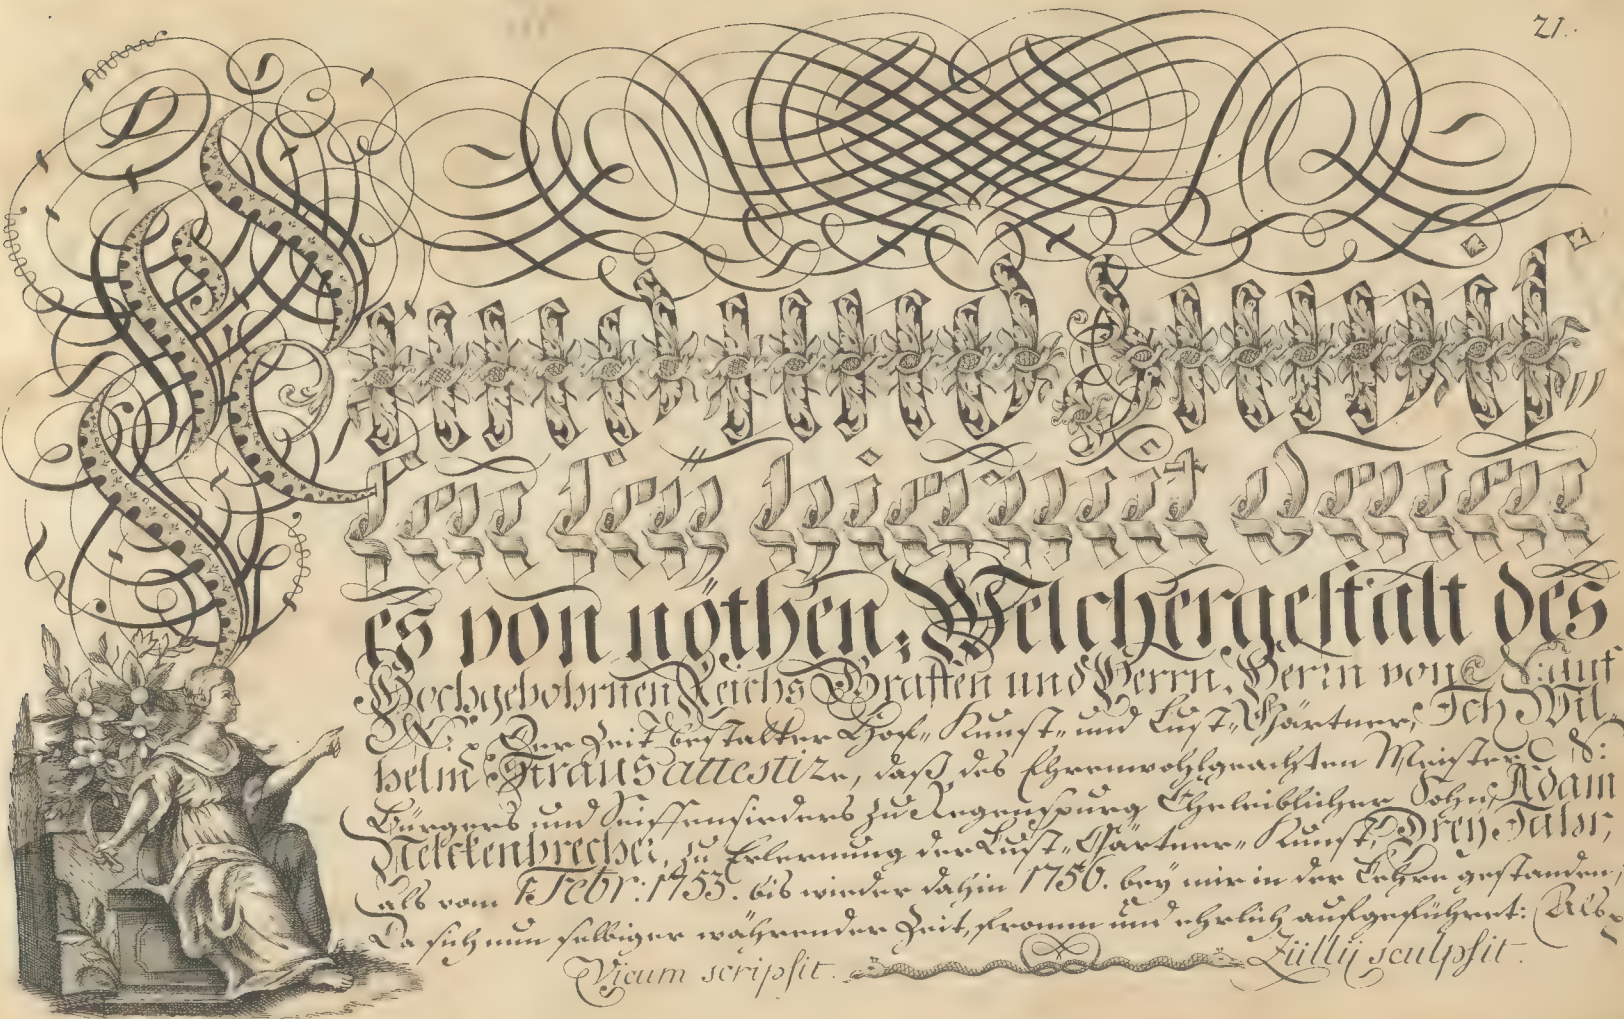 21.
Kund und Zuwis„
sen sey hiermit Denen
es von nöthen; Welchergestalt des
Hochgebohrnen Reichs Graffen und Herrn, Herrn von N: auf
N: Der Zeit bestalter Hof„ Kunst„ und Lust„ Gärtner, Ich Wil„
helm Straus attestire, daß des Ehrenwohlgeachten Meister N:
Bürgers und Seiffensieders zu Regenspurg Eheleiblicher Sohn, Adam
Nelckenbrecher, zu Erlernung der Lust„ Gärtner„ Kunst, Drey Jahr,
als vom 1 Febr: 1753. bis wieder dahin 1756. bey mir in der Lehre gestanden;
Da sich nun selbiger währender Zeit, fromm und ehrlich aufgeführet: Als„
Vicum scripsit. Züllÿ sculpsit.